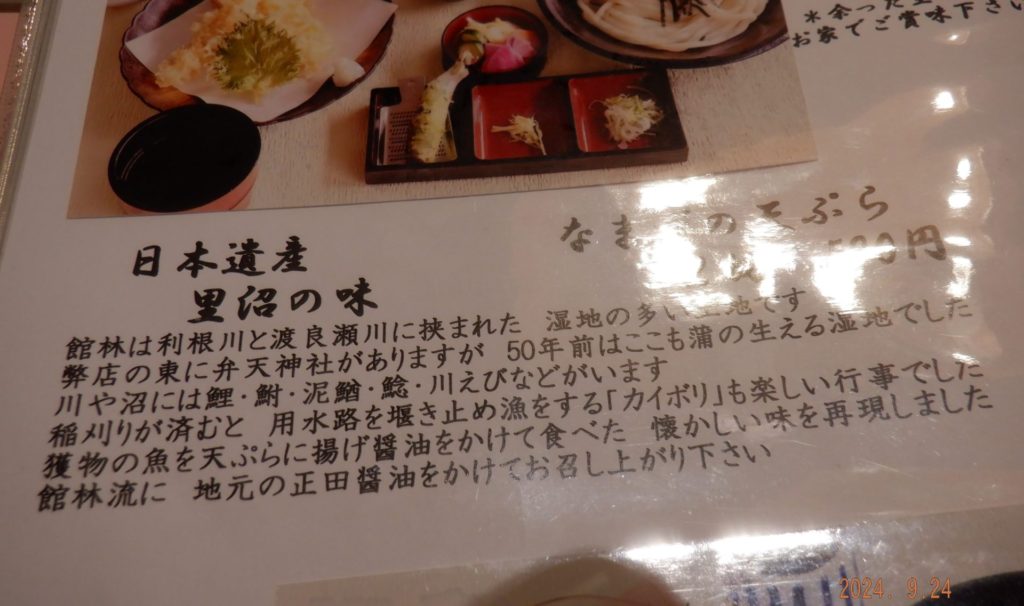 *余った
お家でご賞味下さい
日本遺産
里沼の味
なま の天ぷら
円
館林は利根川と渡良瀬川に挟まれた 湿地の多い 地です
弊店の東に弁天神社がありますが 50年前はここも蒲の生える湿地でした
川や沼には鯉・鮒・泥鰌・鯰・川えびなどがいます
稲刈りが済むと 用水路を堰き止め漁をする「カイボリ」も楽しい行事でした
獲物の魚を天ぷらに揚げ醤油をかけて食べた 懐かしい味を再現しました
館林流に 地元の正田醤油をかけてお召し上がり下さい
2024. 9.24